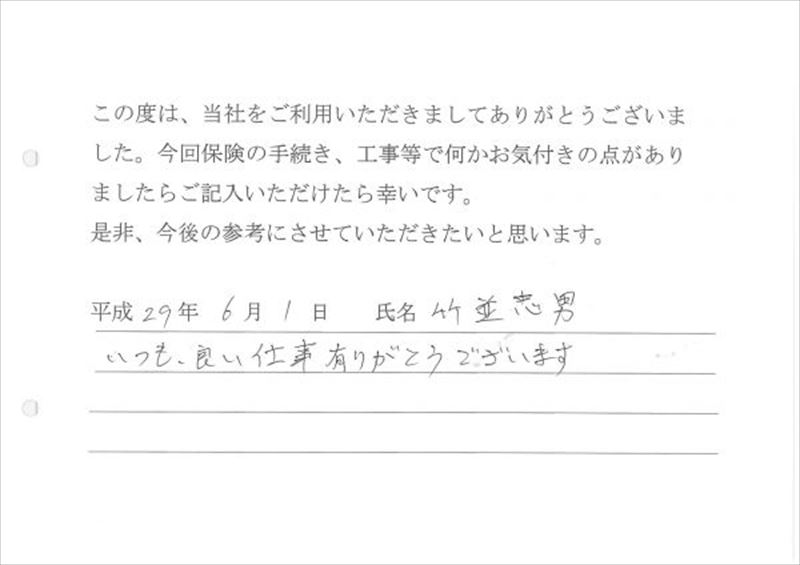 この度は、当社をご利用いただきましてありがとうございま
した。今回保険の手続き、工事等で何かお気付きの点があり
ましたらご記入いただけたら幸いです。
是非、今後の参考にさせていただきたいと思います。
平成29年 6月1日 氏名 竹並忠男
いつも、良い仕事有りがとうございます